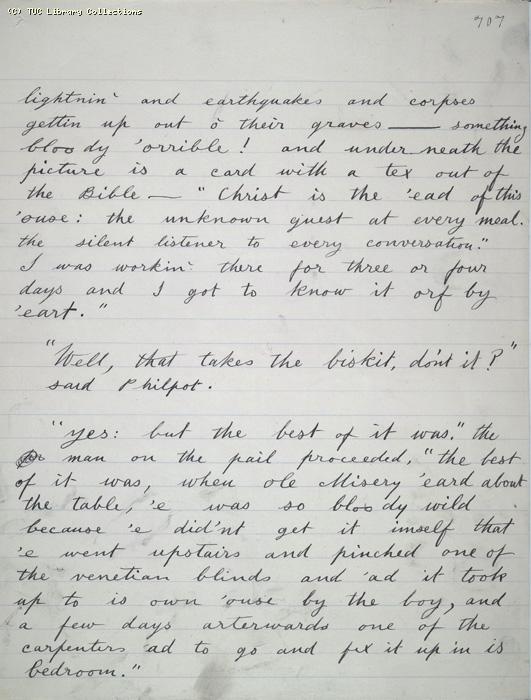 (C) TUC Library Collections
707
lightnin' and earthquakes and corpses
gettin up out o' their graves — something
bloody 'orrible! and underneath the
picture is a card with a tex out of
the Bible — "Christ is the 'ead of this
'ouse: the unknown guest at every meal.
the silent listener to every conversation."
I was workin' there for three or four
days and I got to know it orf by
'eart."
"Well, that takes the biskit, don't it?"
said Philpot.
"yes: but the best of it was." the
man on the pail proceeded, "the best
of it was, when ole Misery 'eard about
the table, 'e was so bloody wild
because 'e did'nt get it imself that
'e went upstairs and pinched one of
the venetian blinds and 'ad it took
up to is own 'ouse by the boy, and
a few days arterwards one of the
carpenters 'ad to go and fix it up in is
bedroom."